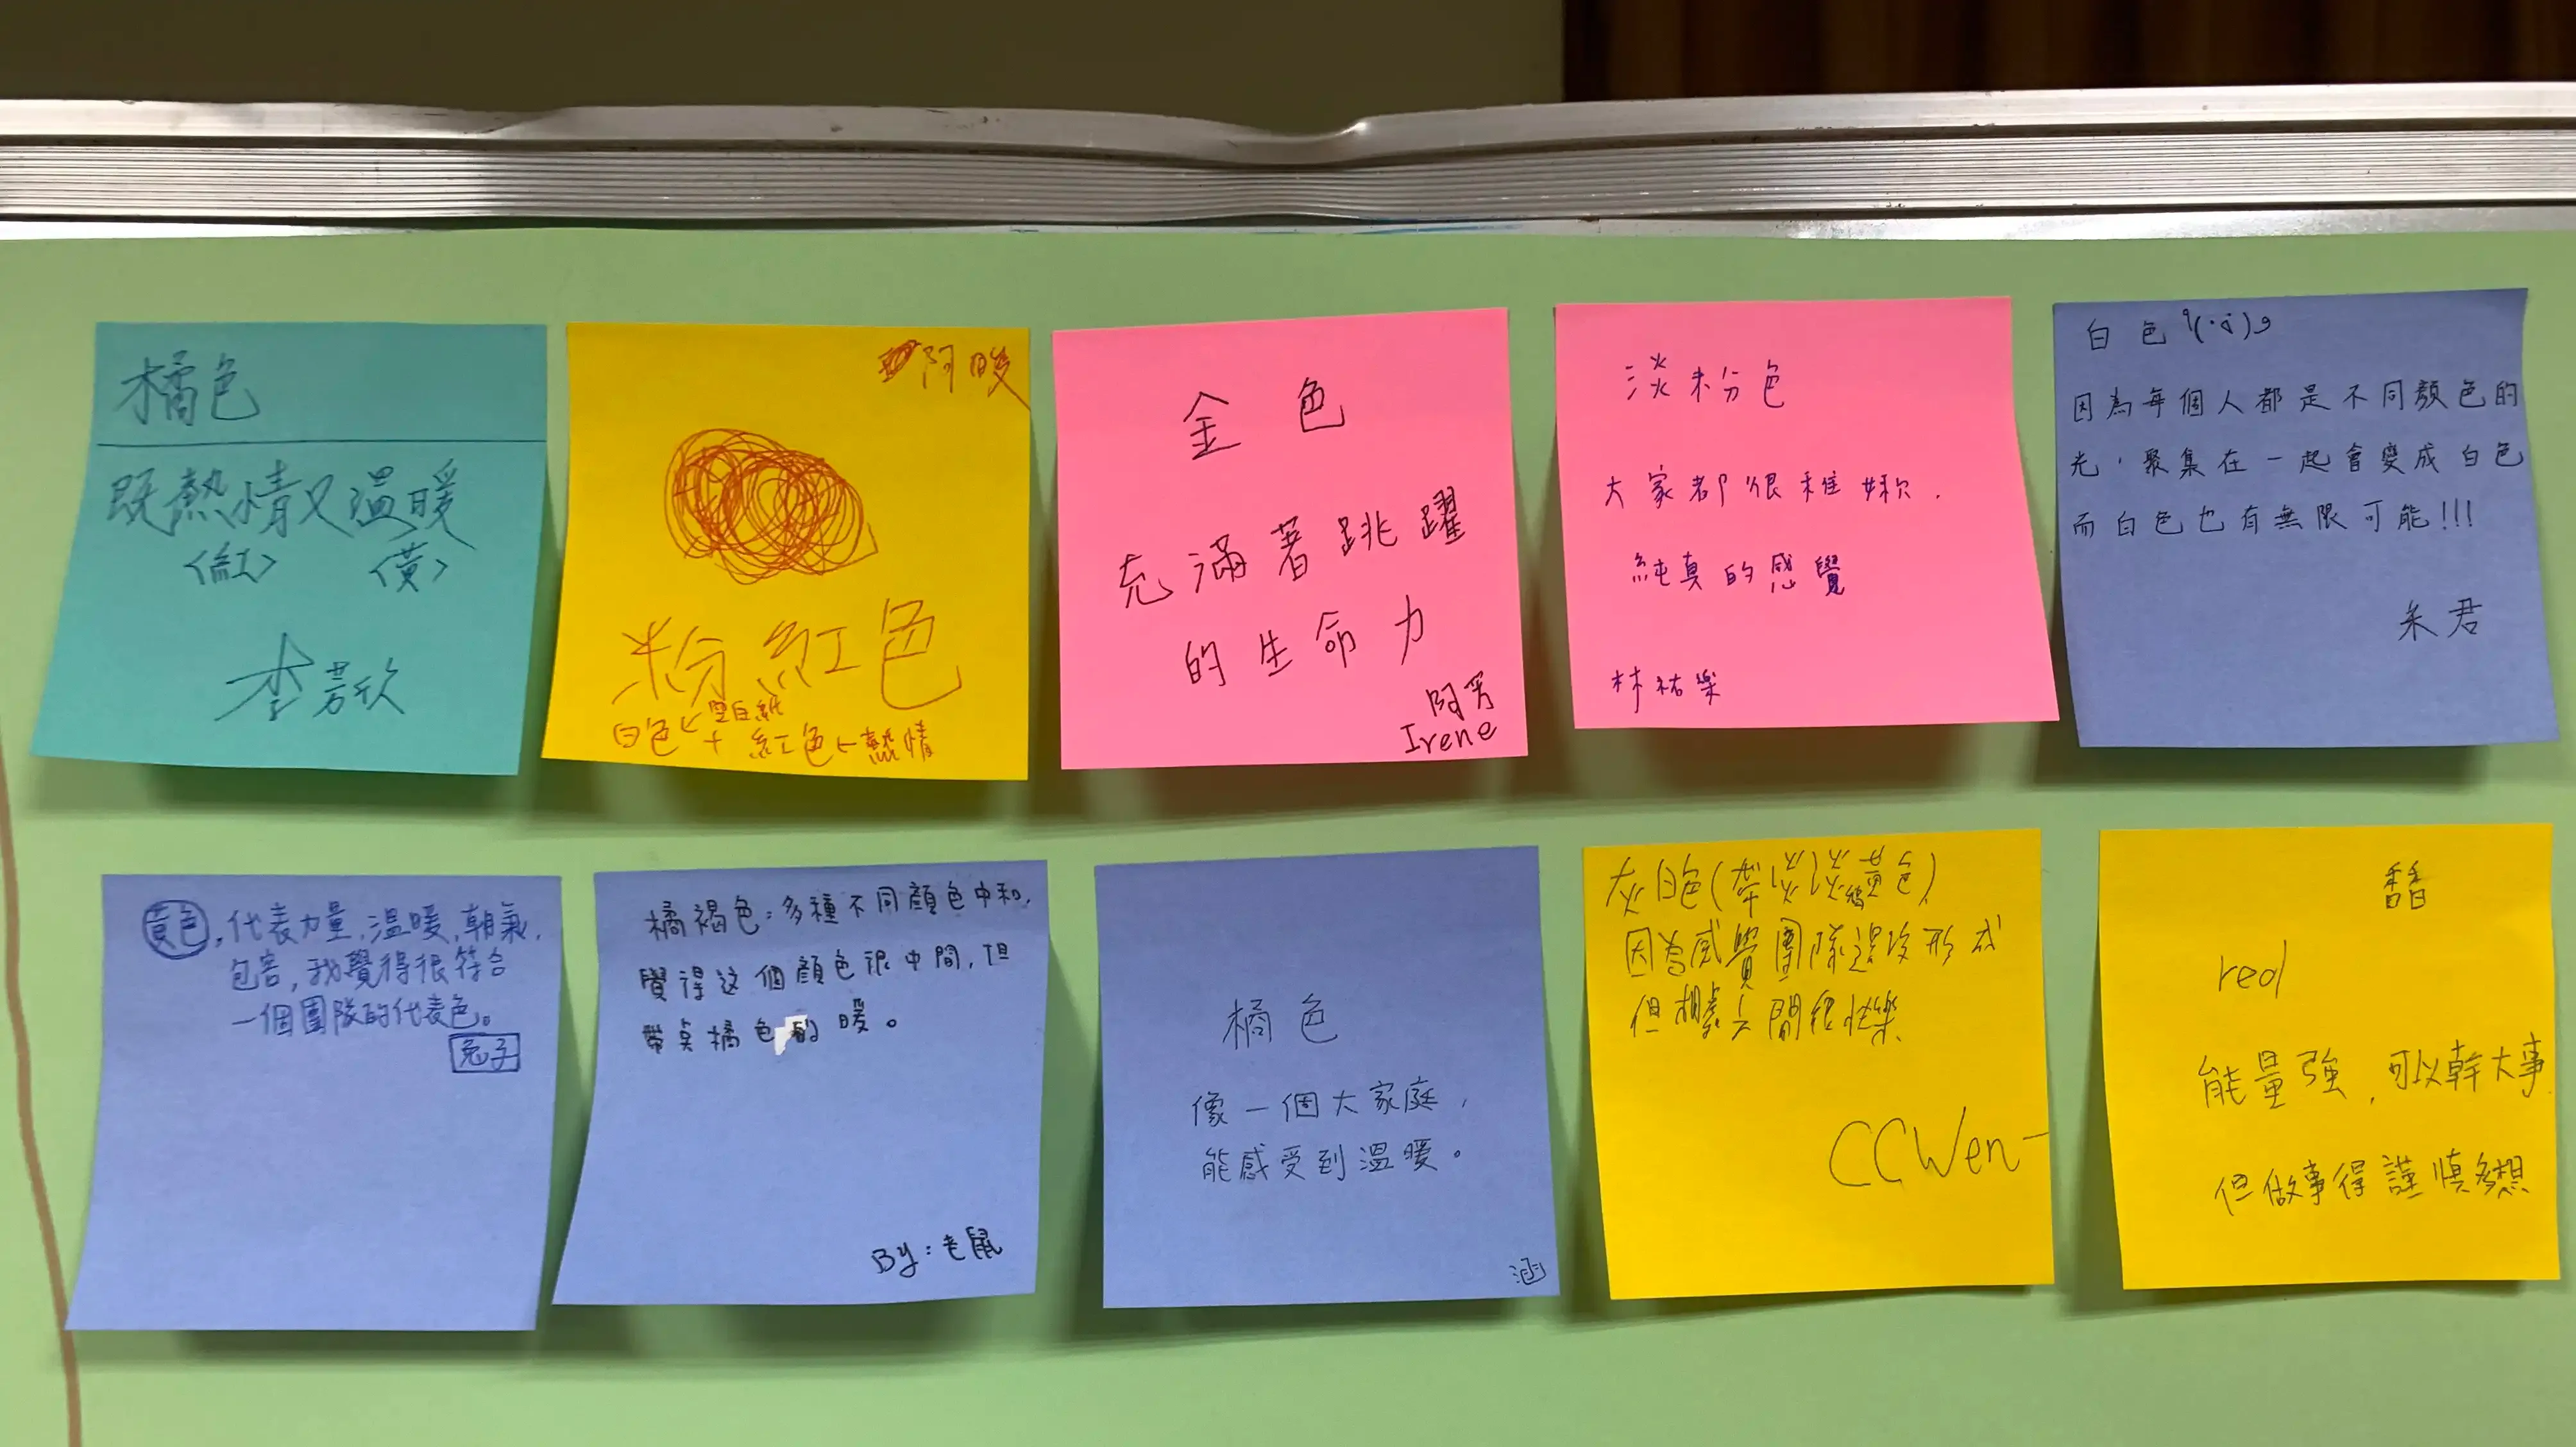 橘色
既熱情又溫暖
<紅> <黃>
李芳欣
阿暖
粉紅色
白色←空白紙
+ 紅色←熱情
金色
充滿著跳躍
的生命力
阿芳
Irene
淡粉色
大家都很稚嫩.
純真的感覺
林祐樂
白色
因為每個人都是不同顏色的
光,聚集在一起會變成白色
而白色也有無限可能!!!
朱君
黃色,代表力量,溫暖,朝氣,
包容,我覺得很符合
一個團隊的代表色。
兔子
橘褐色:多種不同顏色中和,
覺得这個顏色很中間,但
帶点橘色的暖。
By:老鼠
橘色
像一個大家庭,
能感受到溫暖。
涵
灰白色(帶淡淡黃色)
因為感覺團隊還沒形成
但相處之間很快樂
CCWen
馨
red
能量強,可以幹大事
但做事得謹慎多想